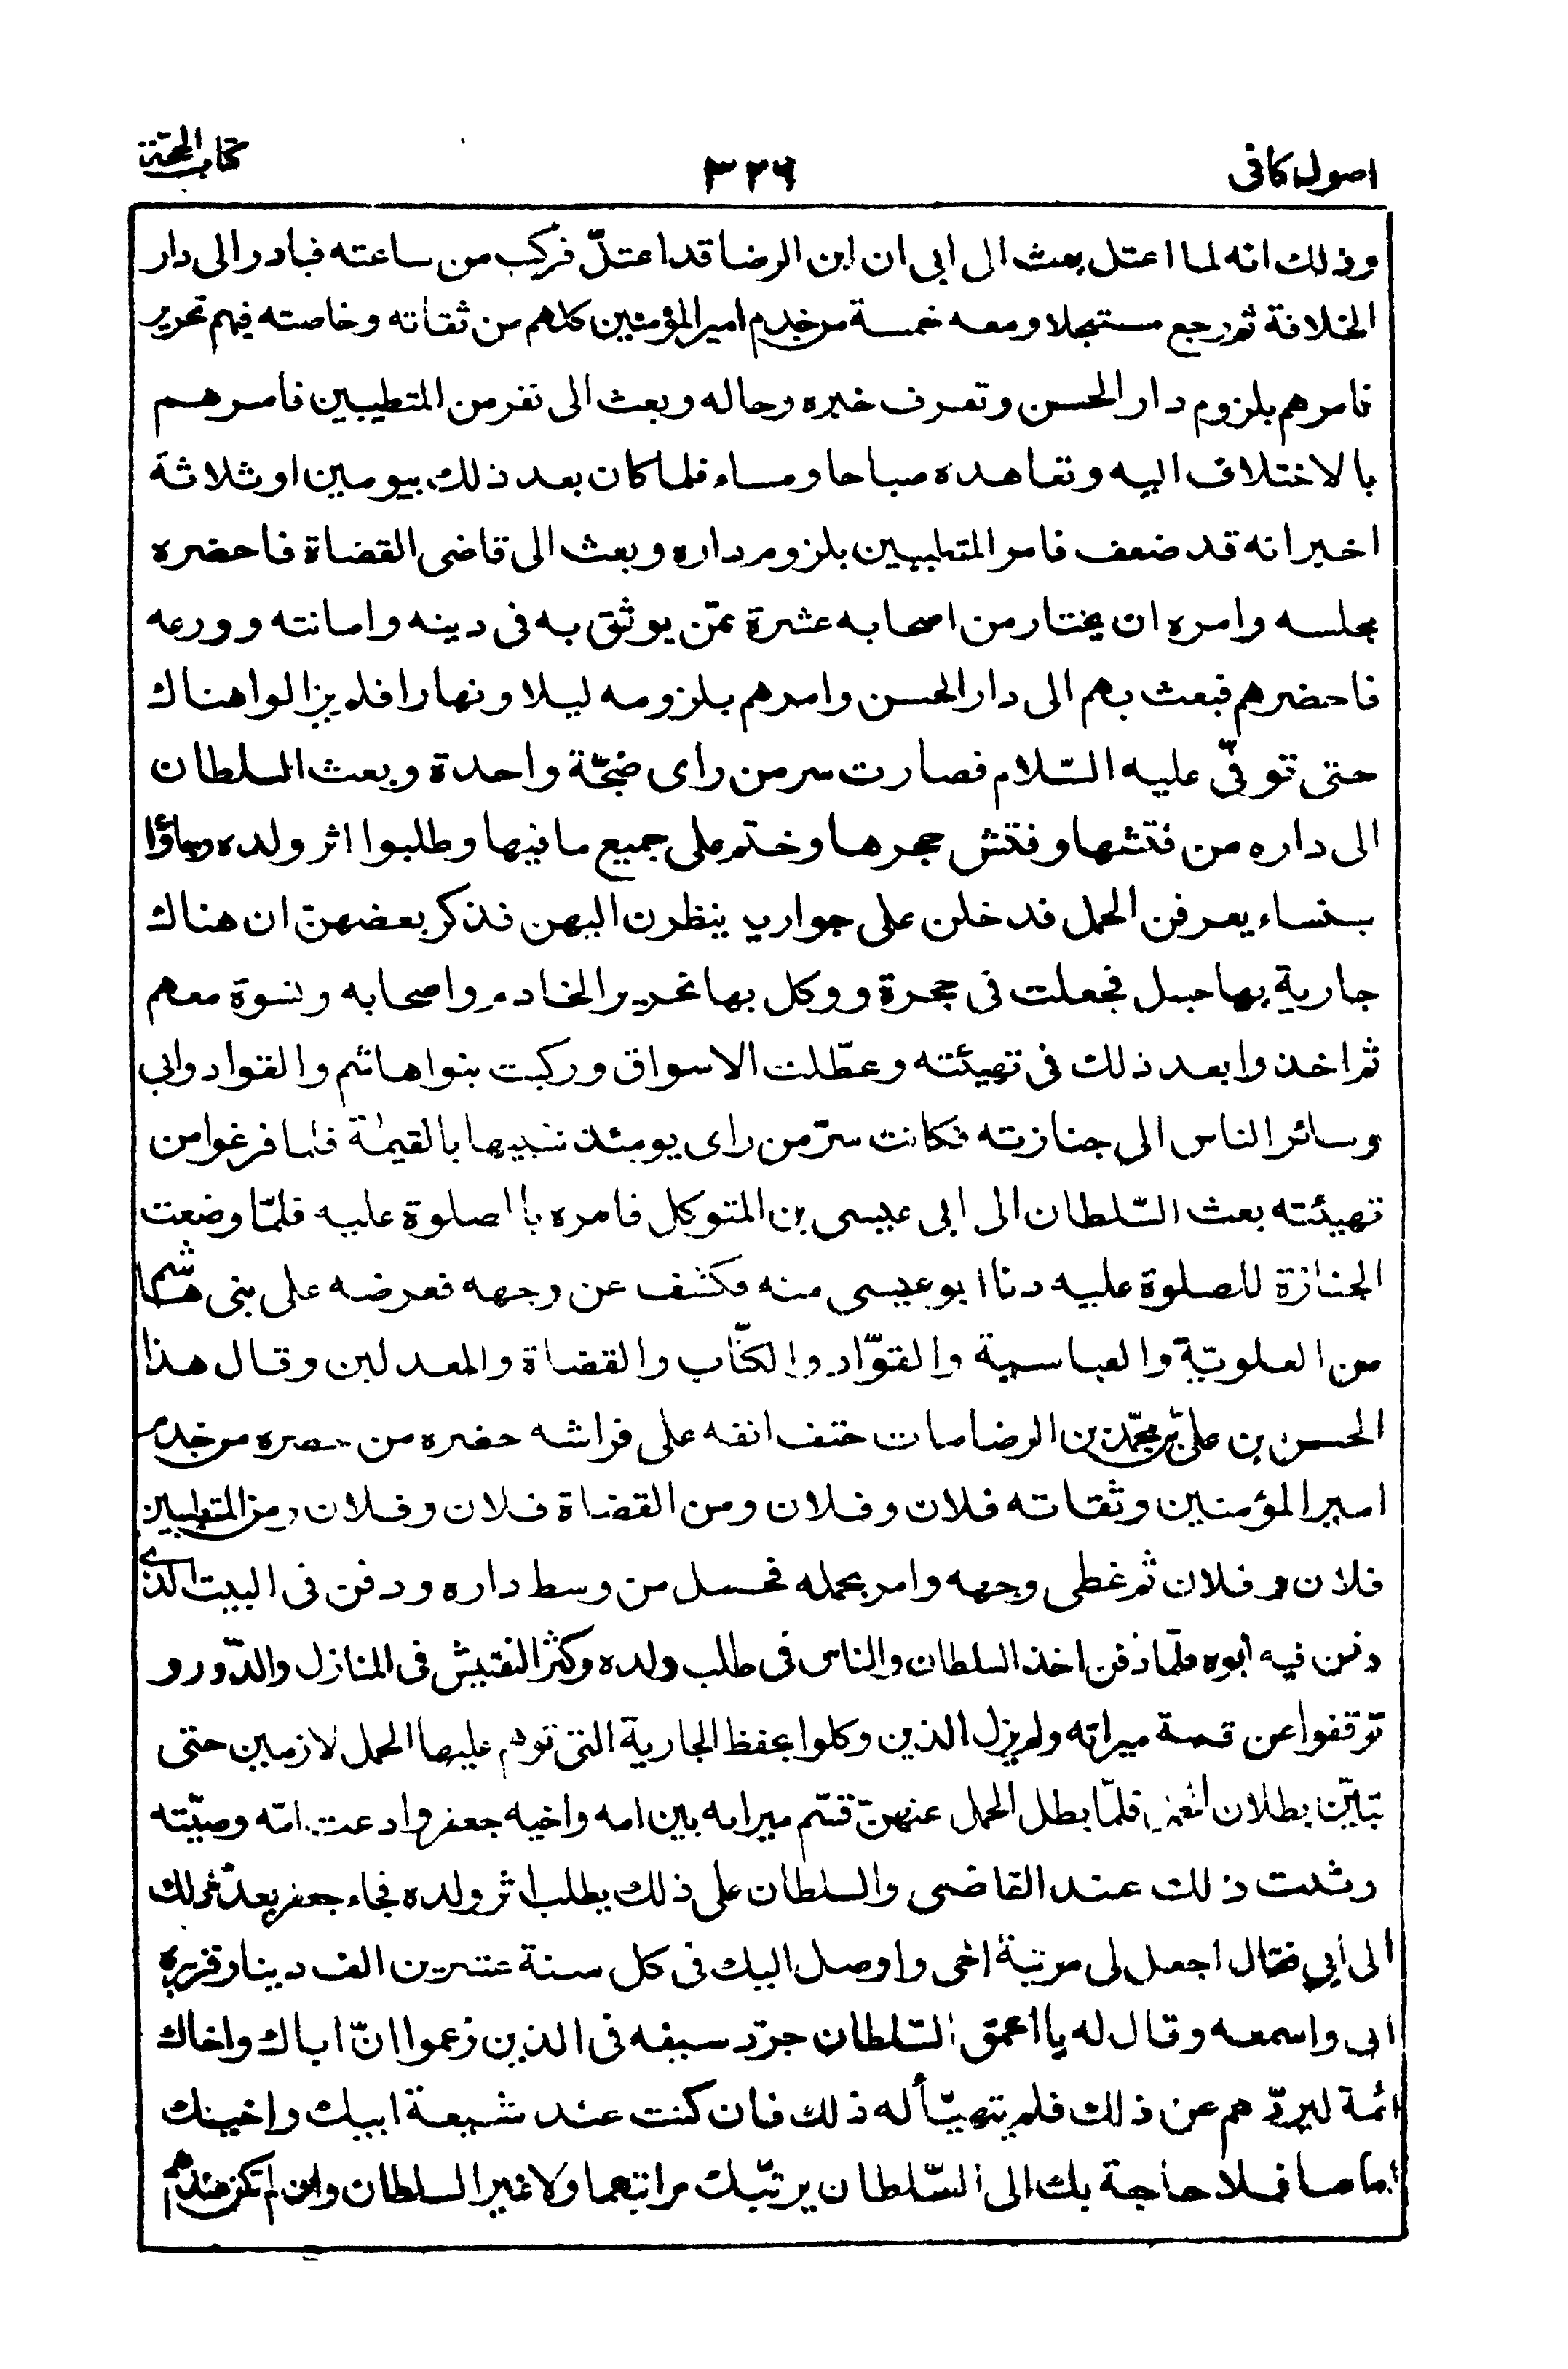 اصول كافى
٣٢٦
كتاب الحجة
وذلك انه لما اعتل بعث الى ابى ان ابن الرضا قد اعتلّ فركب من ساعته فبادر الى دار
الخلافة ثم رجع مستعجلا ومعه خمسة من خدم امير المؤمنين كلهم من ثقاته وخاصته فيهم نحرير
فامرهم بلزوم دار الحسن وتعرف خبره وحاله وبعث الى نفر من المتطببين فامرهم
بالاختلاف اليه وتعاهده صباحا ومساء فلما كان بعد ذلك بيومين او ثلاثة
اخبر انه قد ضعف فامر المتطببين بلزوم داره وبعث الى قاضى القضاة فاحضره
مجلسه وامره ان يختار من اصحابه عشرة ممّن يوثق به فى دينه وامانته وورعه
فاحضرهم فبعث بهم الى دار الحسن وامرهم بلزومه ليلا ونهارا فلم يزالوا هناك
حتى توفّى عليه السّلام فصارت سر من راى ضجّة واحدة وبعث السلطان
الى داره من فتشها وفتش حجرها وختم على جميع ما فيها وطلبوا اثر ولده وجاؤا
بنساء يعرفن الحمل فدخلن على جواريه ينظرن اليهن فذكر بعضهنّ ان هناك
جارية بها حبل فجعلت فى حجرة ووكل بها نحرير الخادم واصحابه ونسوة معهم
ثم اخذوا بعد ذلك فى تهيئته وعطّلت الاسواق وركبت بنوا هاشم والقواد وابى
وسائر الناس الى جنازته فكانت سرّ من راى يومئذ شبيها بالقيمة فلما فرغوا من
تهيئته بعث السّلطان الى ابى عيسى بن المتوكل فامره باالصلوة عليه فلمّا وضعت
الجنازة للصلوة عليه دنا ابو عيسى منه فكشف عن وجهه فعرضه على بنى هاشم
من العلويّة والعباسية والقوّاد والكتّاب والقضاة والمعدلين وقال هذا
الحسن بن علىّ بن محمّد بن الرضا مات حتف انفه على فراشه حضره من حضره من خدم
امير المؤمنين وثقاته فلان وفلان ومن القضاة فلان وفلان ومن المتطببين
فلان وفلان ثم غطى وجهه وامر بحمله فحمل من وسط داره ودفن فى البيت الذى
دفن فيه أبوه فلمّا دفن اخذ السلطان والناس فى طلب ولده وكثر التفتيش فى المنازل والدّور و
توقفوا عن قسمة ميراثه ولم يزل الذين وكلوا بحفظ الجارية التى توهم عليها الحمل لازمين حتى
تبيّن بطلان فلمّا بطل الحمل عنهنّ قسّم ميراثه بين امه واخيه جعفر وادعت امّه وصيّته
وثبت ذلك عند القاضى والسلطان على ذلك يطلب اثر ولده فجاء جعفر بعد ذلك
الى أبي فقال اجعل لى مرتبة اخى واوصل اليك فى كل سنة عشرين الف دينار فزبره
ابى واسمعه وقال له يا أحمق السّلطان جرّد سيفه فى الذين زعموا انّ اباك واخاك
ائمة ليردّهم عن ذلك فلم يتهيّأ له ذلك فان كنت عند شيعة ابيك واخيك
اماما فلا حاجة بك الى السّلطان يرتّبك مراتبهما ولا غير السلطان وان لم تكن عندهم